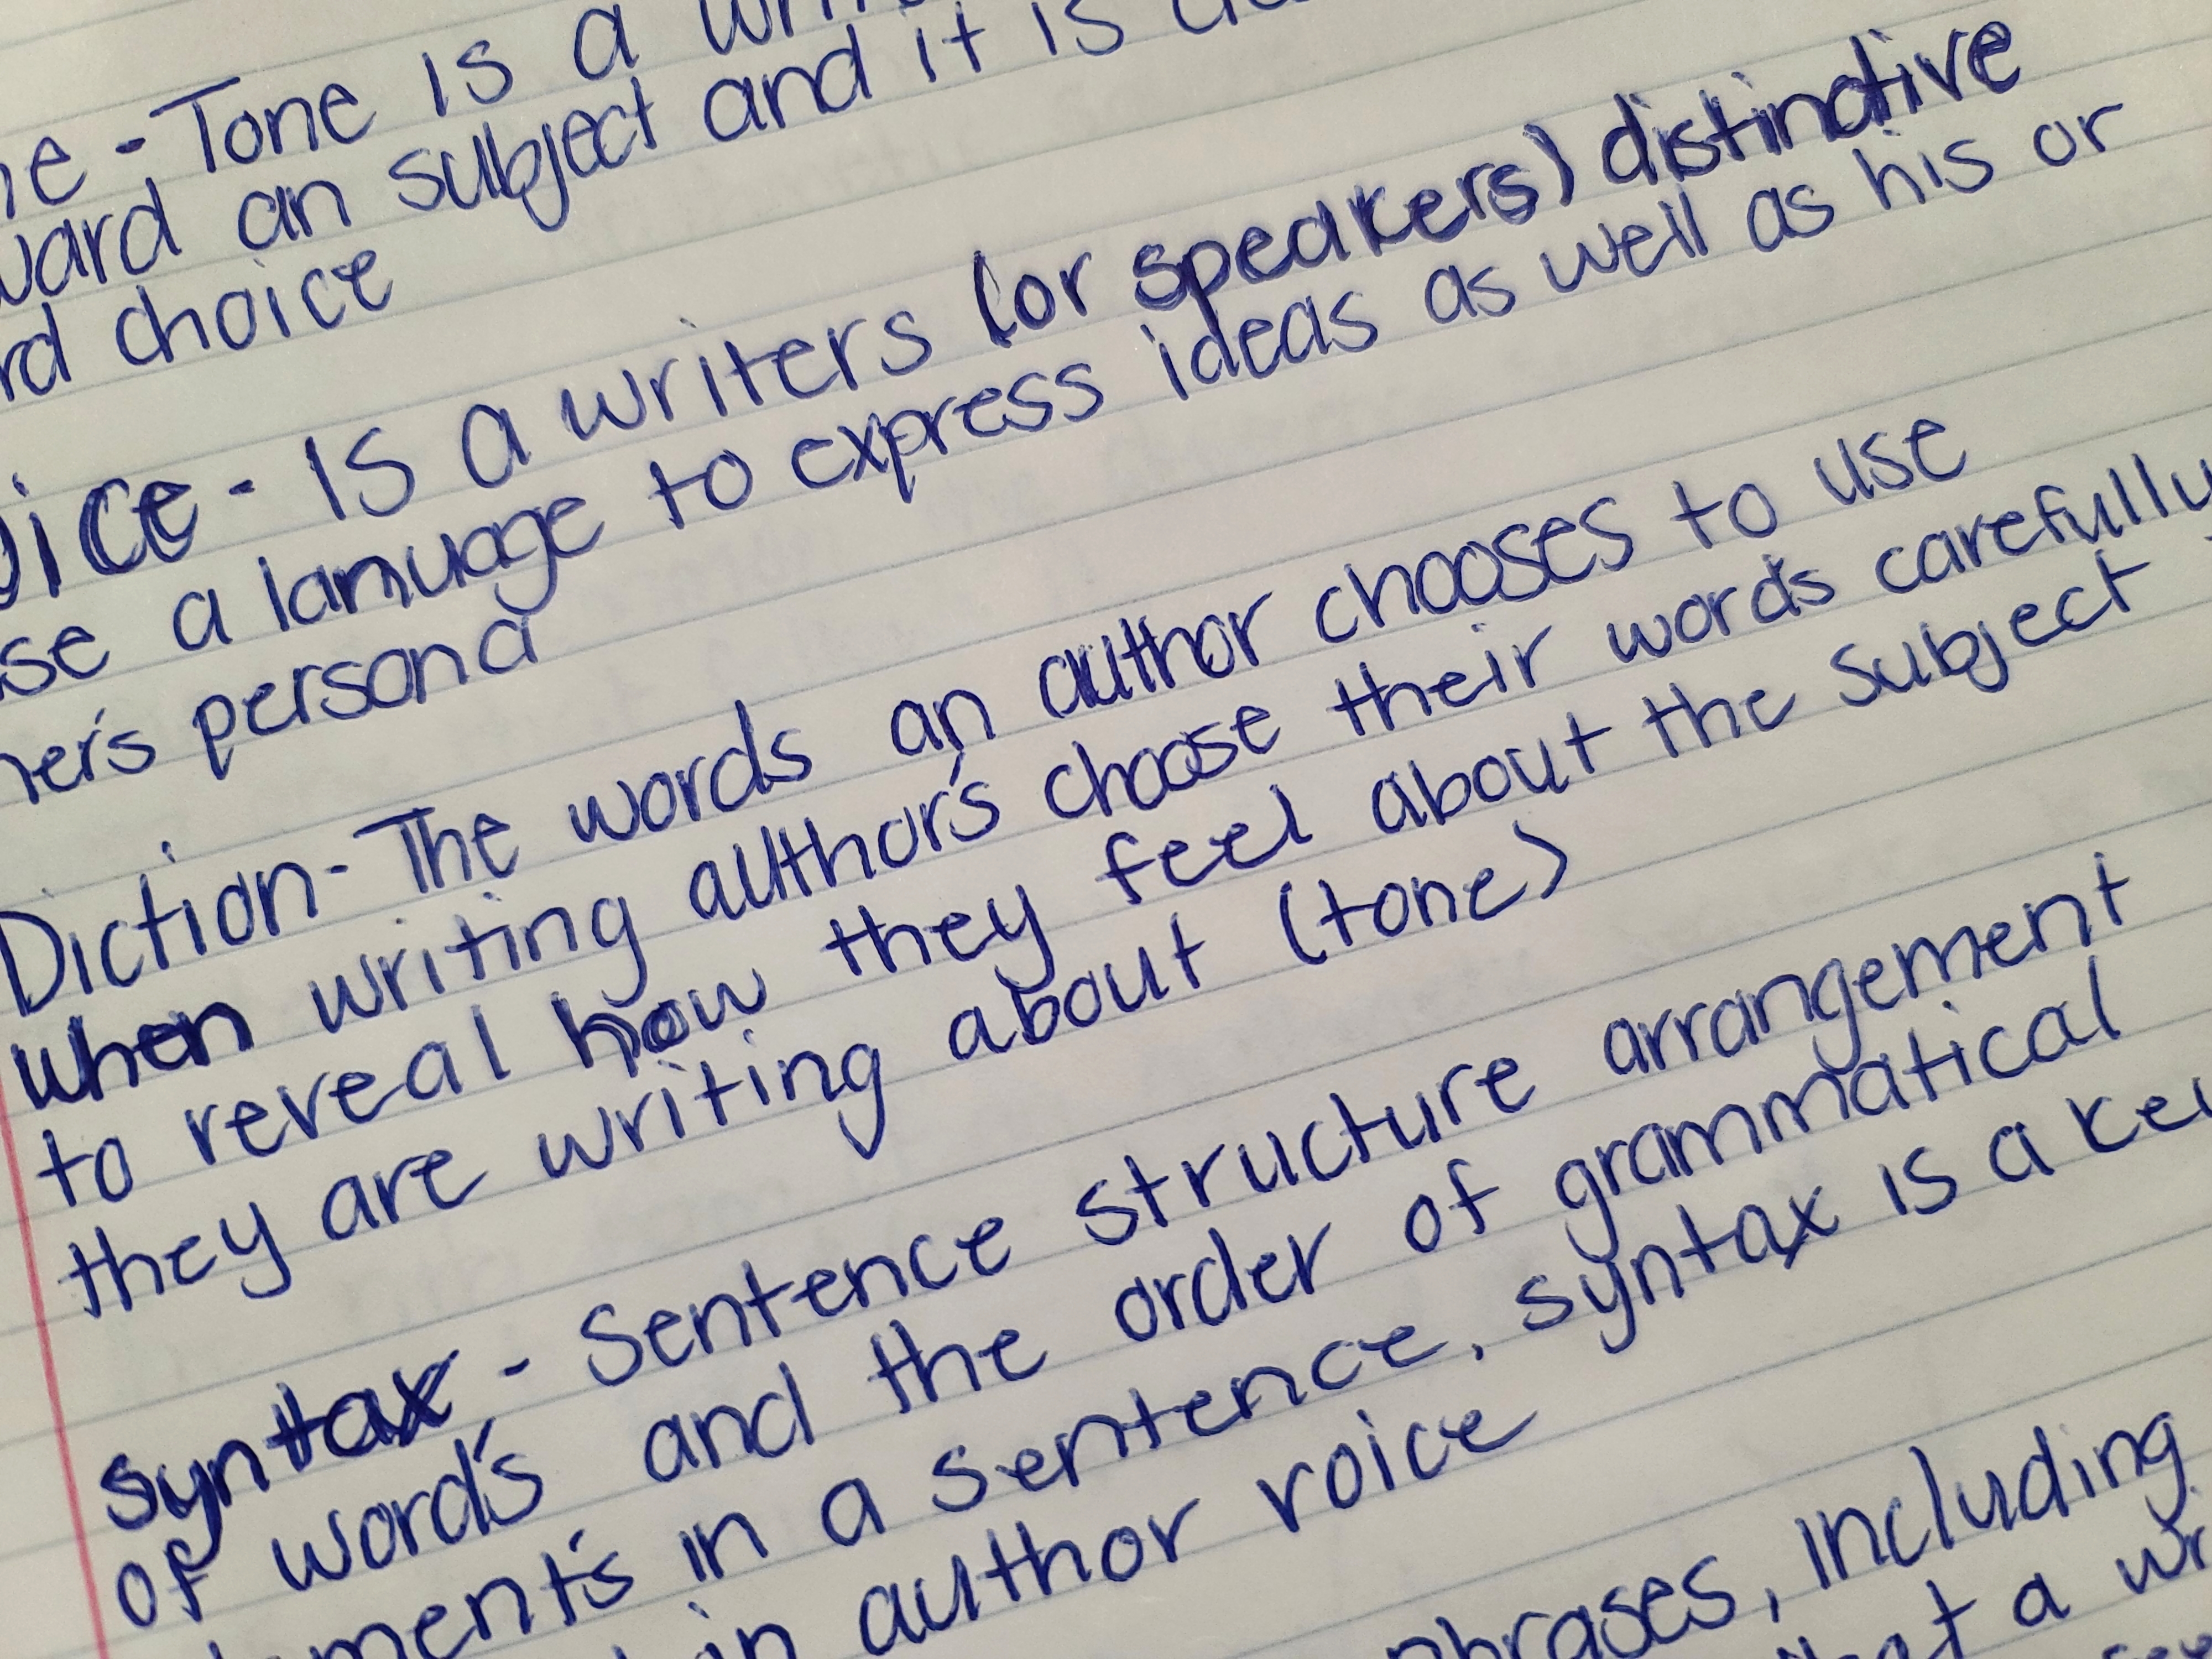 - Tone is a
an subject and it is
choice
- Is a writers (or speakers) distinctive
a lanuage to express ideas as well as his or
persona
Diction - The words an author chooses to use
when writing author's choose their words carefully
to reveal how they feel about the subject
they are writing about (tone)
syntax - Sentence structure arrangement
of word's and the order of grammatical
in a sentence. syntax is a
in author voice
phrases, including
a